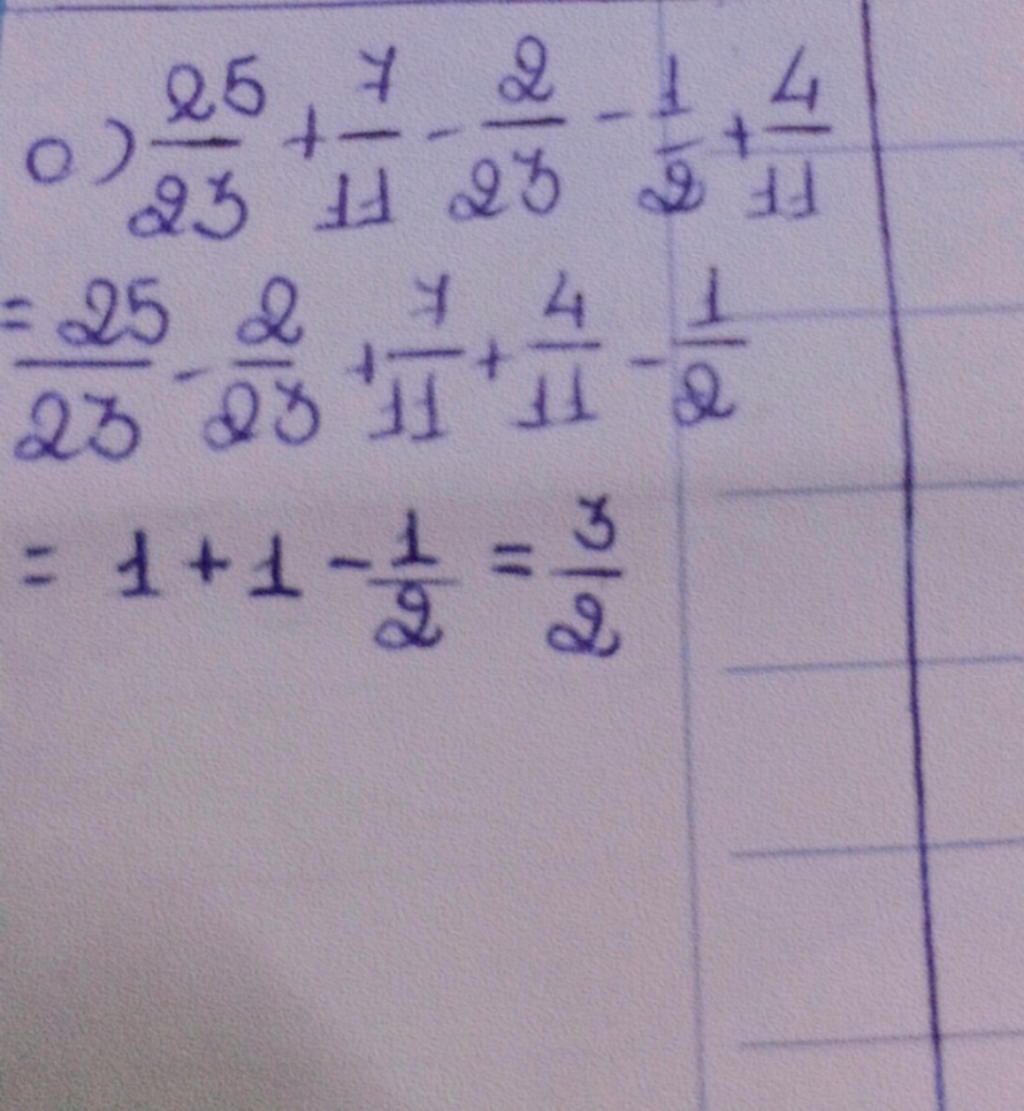 o) 25/23 + 7/11 - 2/23 - 1/2 + 4/11
= 25/23 - 2/23 + 7/11 + 4/11 - 1/2
= 1 + 1 - 1/2 = 3/2